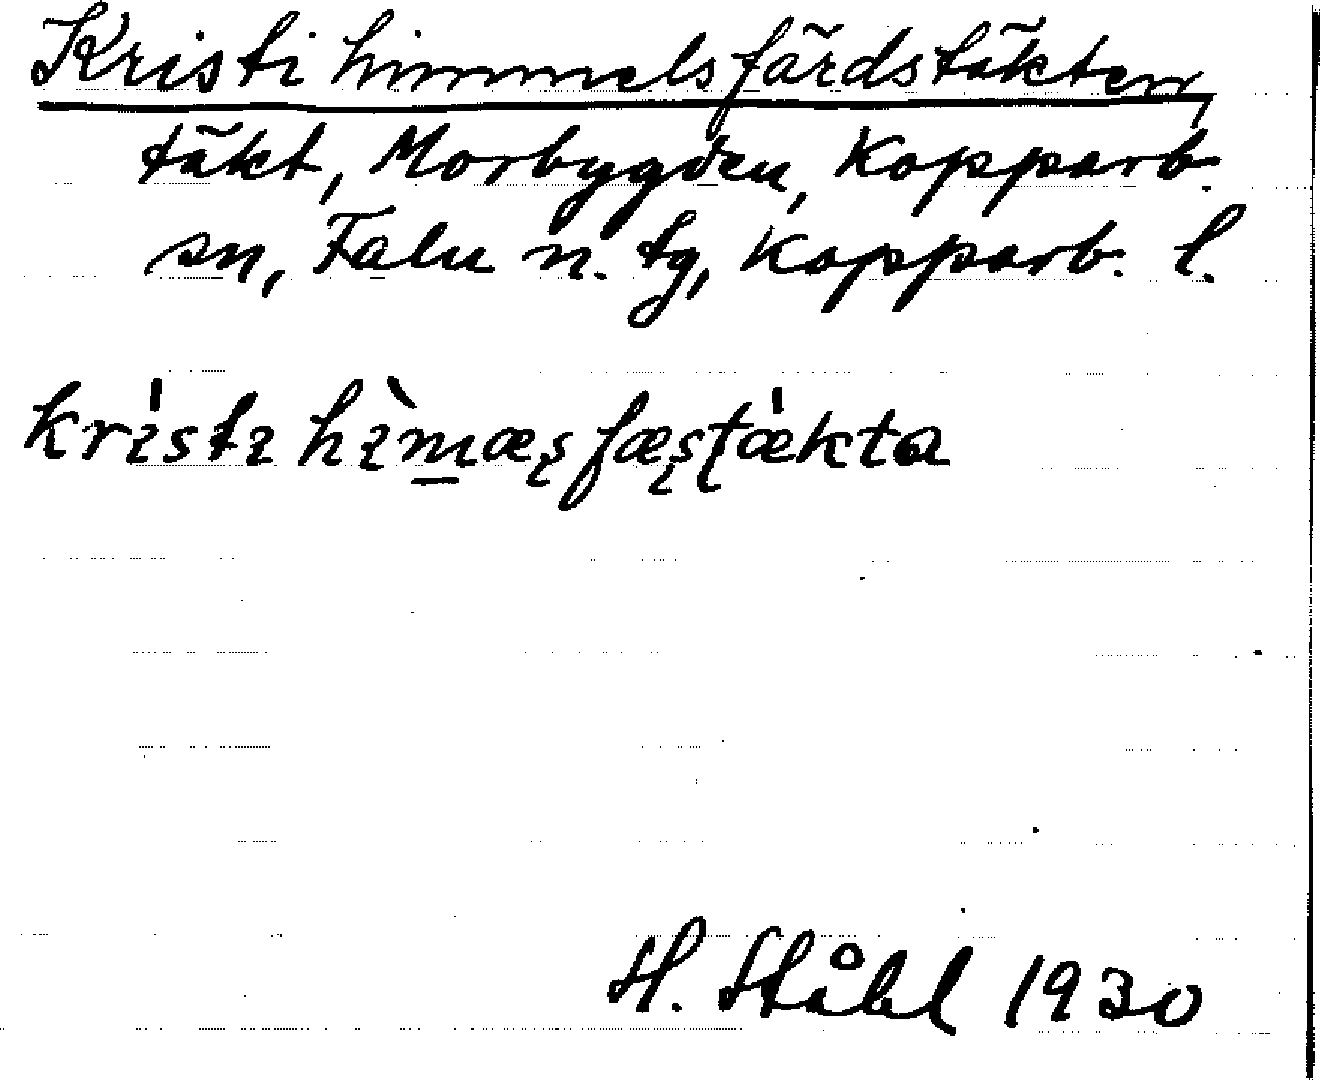 Kristi himmelsfärdstäkten,
täkt, Morbygden, Kopparb.
sn, Falu n. tg, Kopparb. l.
krı̍stı hı̀m̲æʂfæʂʈæ̍kta
H. Ståhl 1930